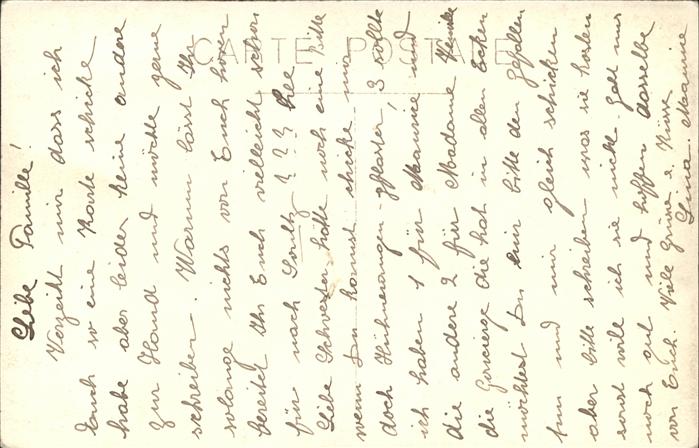 CARTE POSTALE
Liebe Familie!
Verzeiht mir dass ich
Euch so eine Karte schicke
habe aber leider keine andere
zur Hand und möchte gerne
schreiben. Warum lässt Ihr
solange nichts von Euch hören
bereitet Ihr Euch vielleicht schon
für nach ? ? ?
Liebe Schwester hätte noch eine Bitte
wenn Du kannst schicke mir
doch Hühneraugenpflaster, 3 sollte
ich haben 1 für Maurice und
die andere 2 für Madame
die die hat in allen Ecken
möchtest Du mir bitte den Gefallen
tun und mir gleich schicken
aber bitte schreiben was sie kosten
sonst will ich sie nicht. Geht mir
noch gut und hoffen dasselbe
von Euch. Viele Grüsse & Küsse
Maurice